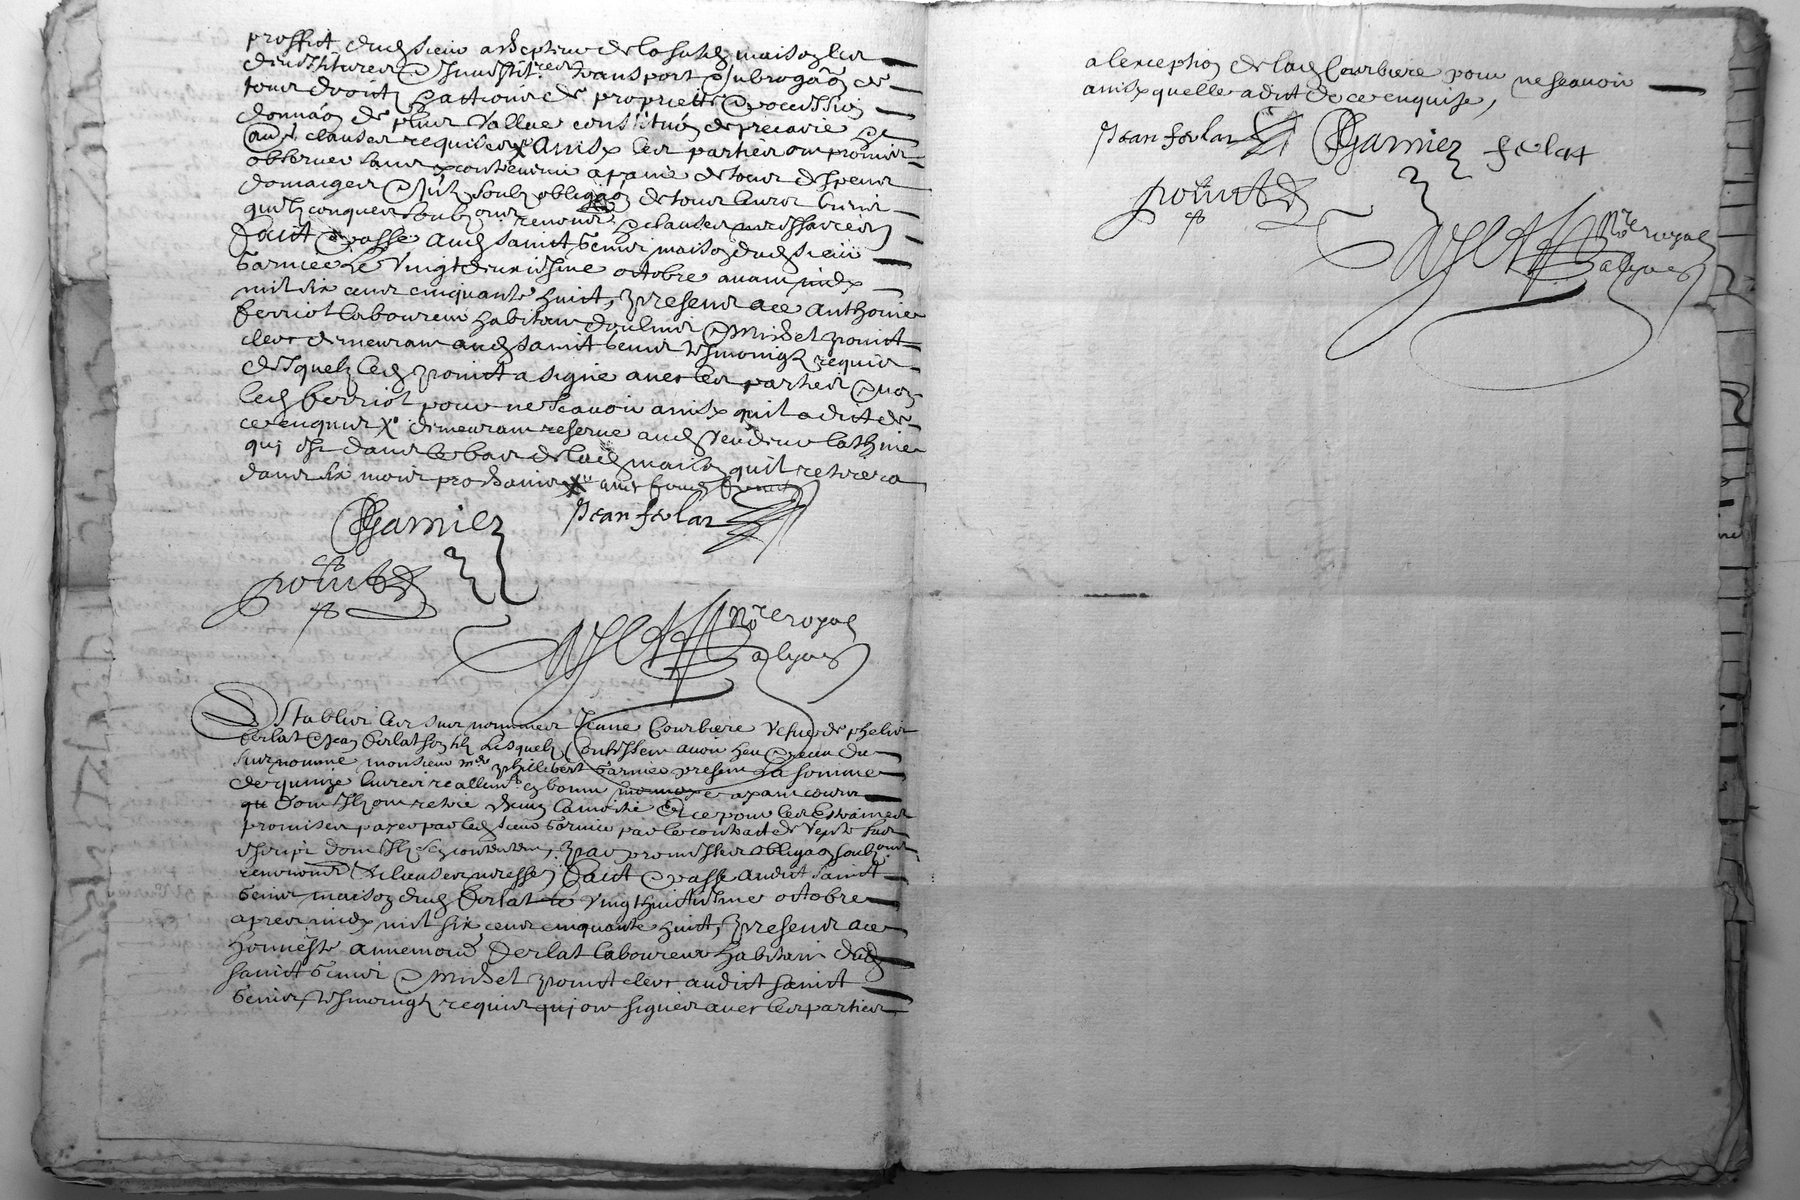 proffit dud sieur achepteur de lasusd maison les
devestituree & Investitree transport & subrogaon de
tous droitz & actions de propriette & possession
donnaon de plus vallue constituon de precaire &
aues clauses requises X Ainsy les parties ont promis
observer sans y contrevenir a payne de tous despens
domaiges & Intz soubz obligaon de tous leurs biens
quelz conques soubzmis renoncs & clauses necessaires
Faict & passe aud sainct Genis maison dud sieur
Garnier le vingtdeuxiesme octobre avant midy
mil six cens cinquante huict, presens a ce Anthoine
ferriol laboureur habitant & Michel poinct
clerc demeurant aud sainct Genis tesmoingz requis
desquelz led poinct a signe avec les parties & non
led ferriol pour ne scavoir ainsy quil a dict de
ce enquis X demeurant reserve aud vendeur
qui est dans le bas de lad maison quil retirera
dans six mois prochains X
Garnier Jean ferlat
poinct
Nore royal
a lyon
Establis les surnommes Jeane Courbiere vefve de phelis
ferlat & Jean ferlat son filz Lesquelz confessent avoir heu & receu du
surnomme monsieur me phillibert Garnier present La somme
de quinze livres reallemt en bonne monnoye ayant cours
que dont Ilz ont retire chacun la moitie Et ce pour les Estraines
promises payer par led sieur Garnier par le contract de vente sus
escript dont Ilz se contentent, par promesses obligaon soubzmis
renoncons & clauses necesses Faict & passe audict sainct
Genis maison dud ferlat le vingthuictiesme octobre
apres midy mil six cens cinquante huict, presens a ce
honneste annemond ferlat laboureur habitant dud
sainct Genis & Michel poinct clerc audict sainct
Genis, tesmoingz requis qui ont signes avec les parties
a lexception de lad Courbiere pour ne scavoir
ainsy quelle a dict de ce enquise,
Jean ferlat Garnier ferlat
poinct
Nore royal
a lyon